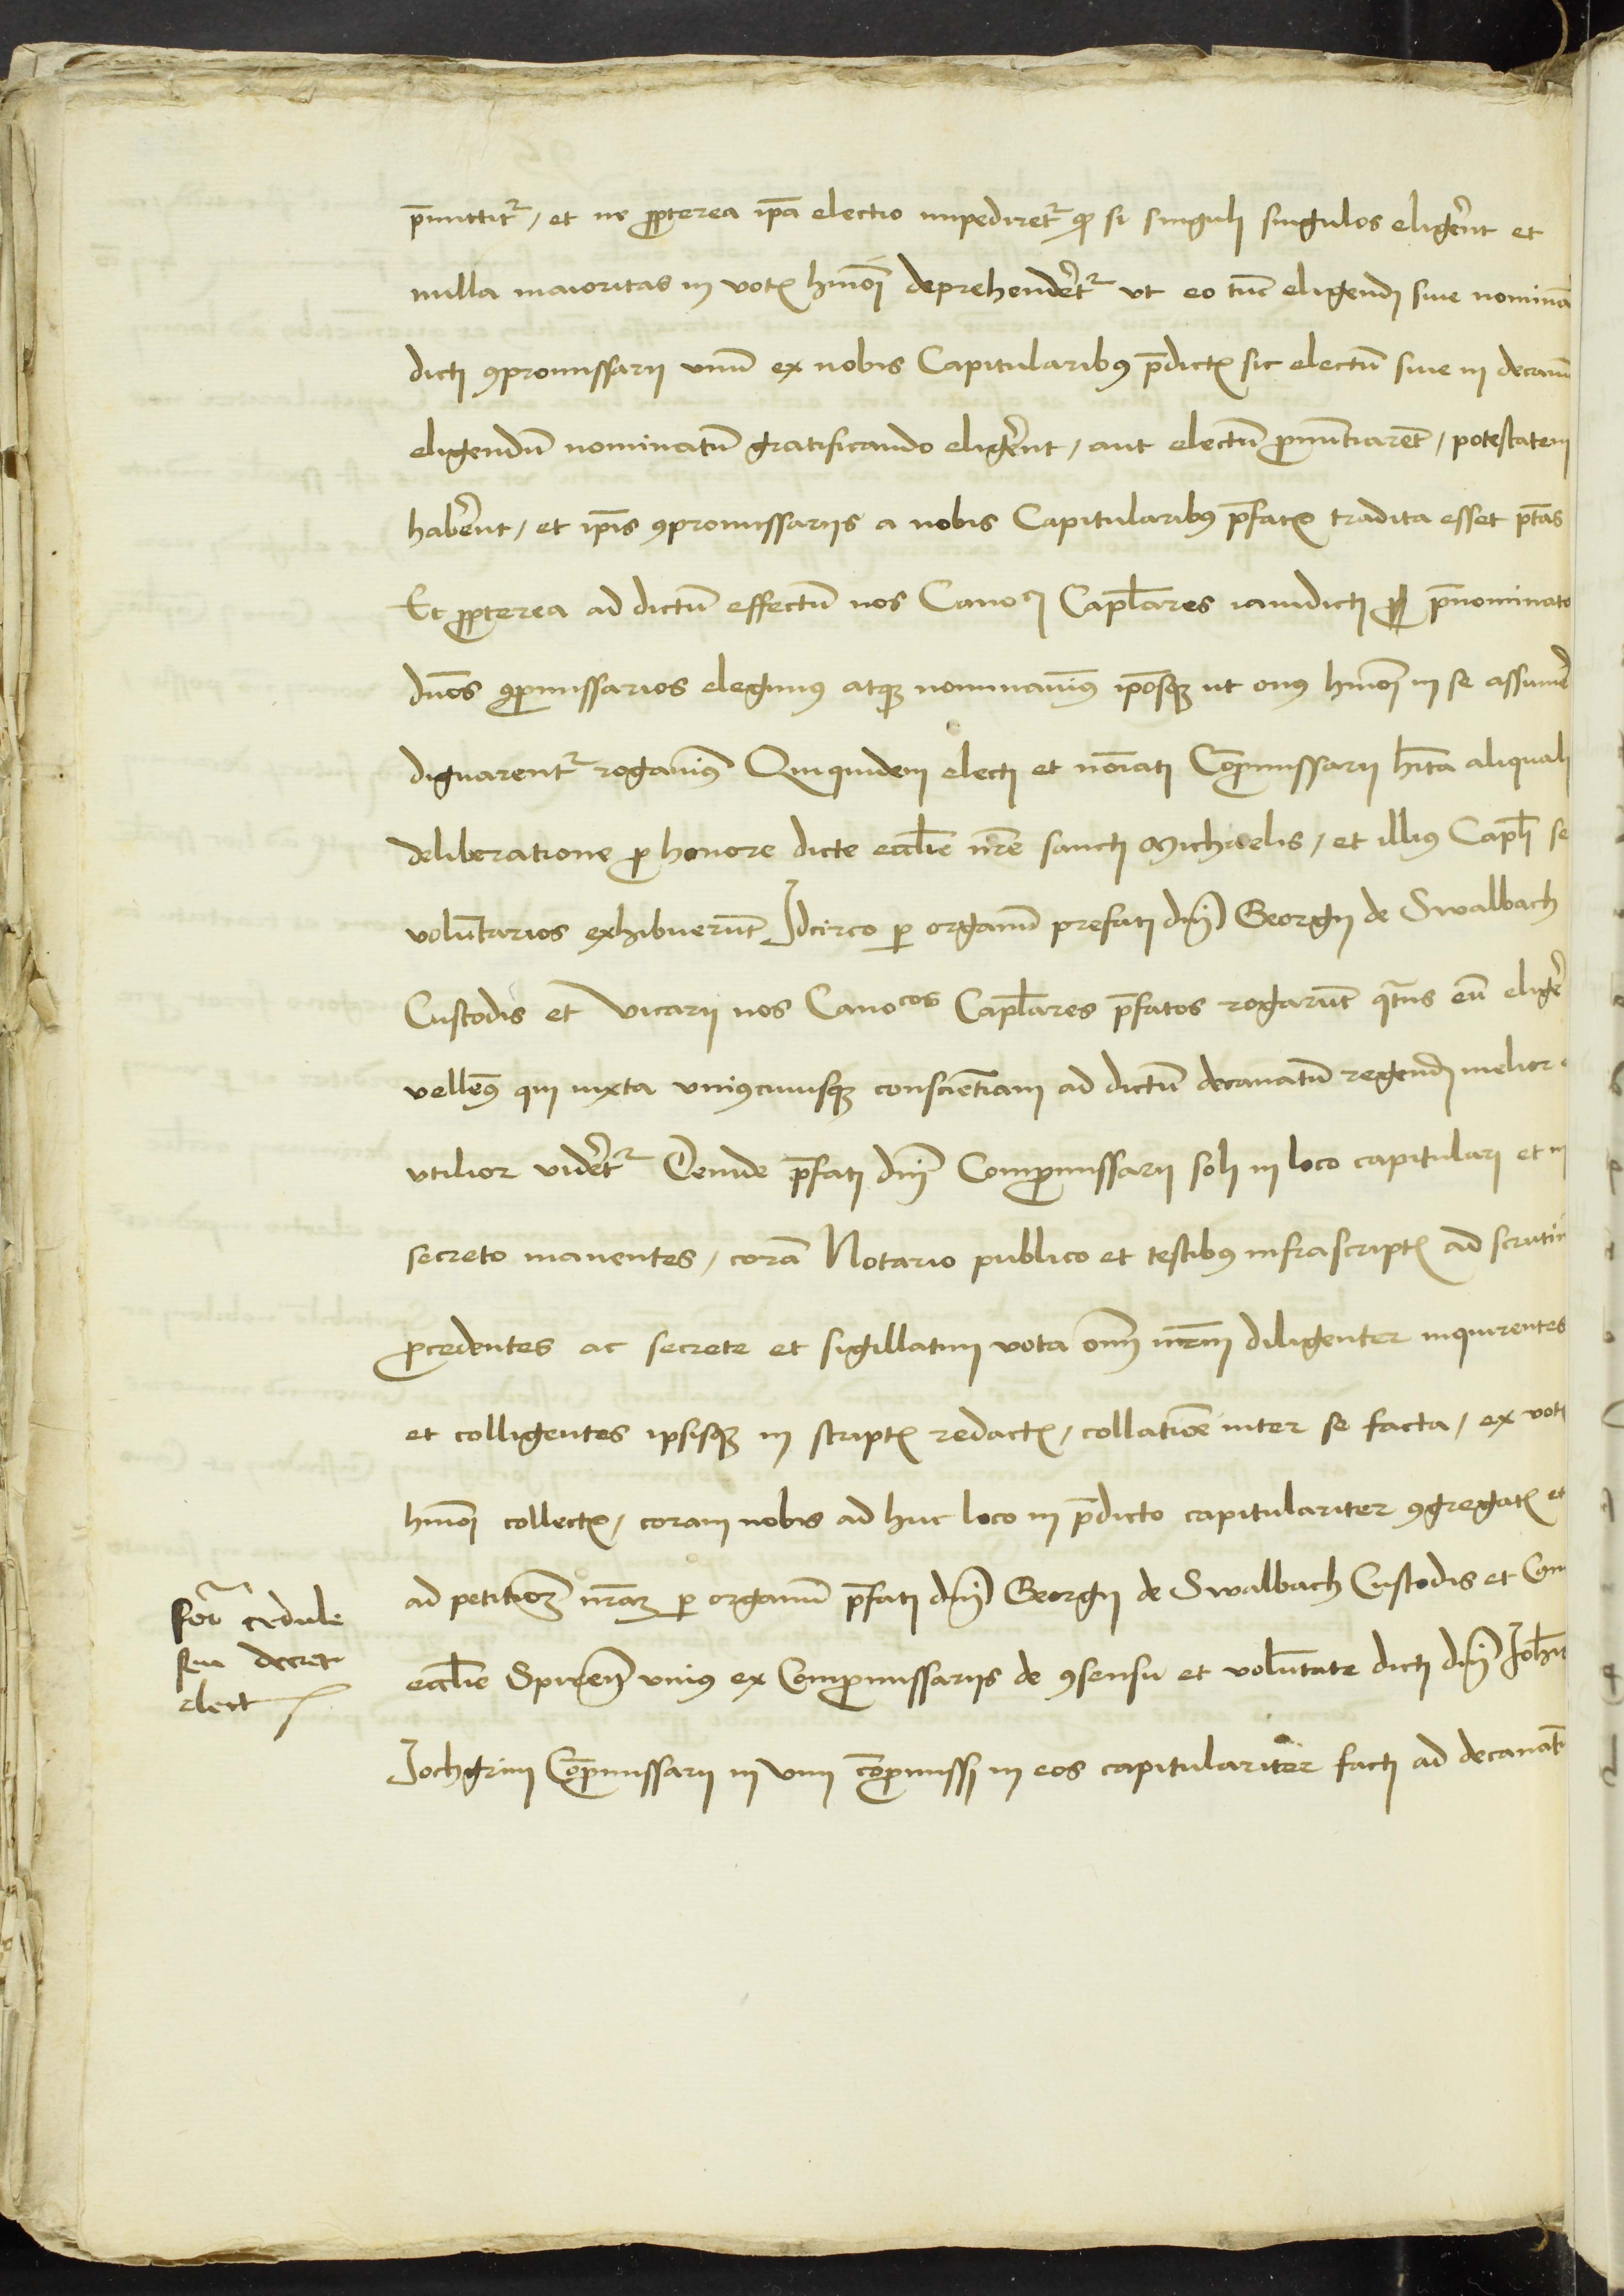 p̄mittit᷑ / et ne ꝓpterea ip̄a electio impediret᷑ ꝙ si singuli singulos elig̃ent et
nulla maioritas in votꝭ hm̄oi deprehendet᷑ vt eo tūc eligendi siue nominā
dicti ꝯpromissarii vnū ex nobis Capitularibꝰ p̄dictꝭ sic electū siue in decanū
eligendū nominatū gratificando elig̃ent / aut electū ꝓnūtiarēt / potestatem
hab̃ent / et ip̄is ꝯpromissariis a nobis Capitularibꝰ p̄fatꝭ tradita esset p̄tas
Et ꝓpterea ad dictū effectū nos Canoci Capl̄ares iamdicti p̄nominato
duos ꝯpromissarios elegimꝰ atqꝫ nominauimꝰ ip̄osqꝫ vt onꝰ hm̄oi in se assumē
dignarent᷑ rogauimꝰ Quiquidem electi et no͞iati Cōpromissarii h̄ita aliquali
deliberatione ꝓ honore dicte eccl̄ie nr̄e sancti Michaelis / et illiꝰ Capl̄i se
volūtarios exhibuerūt Idcirco ꝑ organū prefati dn̄i Georgii de Swalbach
Custodis et vicarii nos Canocos Capl̄ares p̄fatos rogarūt qͣtnꝰ eū elig̃e
vellemꝰ qui iuxta vniuscuiusqꝫ conscientiam ad dictū decanatū regendū melior
vtilior videret᷑ Deinde p̄fati dn̄i Compromissarii soli in loco capitulari et in
secreto manentes / corā Notario publico et testibꝰ infrascriptꝭ ad scrutin
ꝓcedentes ac secrete et sigillatim vota om̄i nr̄m diligenter inquirentes
et colligentes ipsisqꝫ in scriptꝭ redactꝭ / collatiōe inter se facta / ex votꝭ
hm̄oi collectꝭ / coram nobis ad huc loco in p̄dicto capitulariter ꝯgregatꝭ et
ad petitionē nr̄am ꝑ organū p̄fati dn̄i Georgii de Swalbach Custodis et Can
eccl̄ie Spireñ vniꝰ ex Compromissariis de ꝯsensu et volūtate dicti dn̄i Joh̄is
Jochgrim Cōpromissarii in vim cōpromissi in eos capitulariter facti ad decanatū
for̄a cedule
seu decret
elect